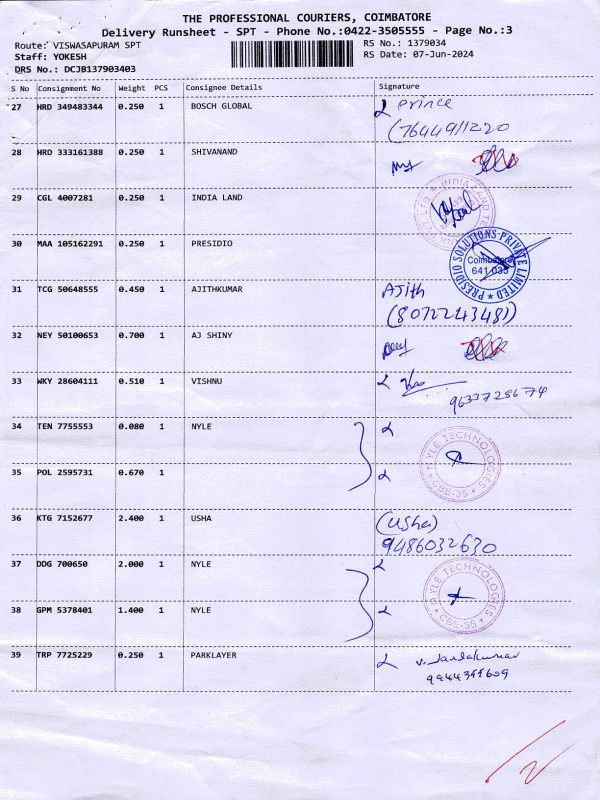 THE PROFESSIONAL COURIERS, COIMBATORE
Delivery Runsheet - SPT - Phone No.:0422-3505555 - Page No.:3
Route: VISWASAPURAM SPT RS No.: 1379034
Staff: YOKESH RS Date: 07-Jun-2024
DRS No.: DCJB137903403
S No Consignment No Weight PCS Consignee Details Signature
27 HRD 349483344 0.250 1 BOSCH GLOBAL Prince
(7644911220
28 HRD 333161388 0.250 1 SHIVANAND
29 CGL 4007281 0.250 1 INDIA LAND
30 MAA 105162291 0.250 1 PRESIDIO
PRESIDIO SOLUTIONS PRIVATE LIMITED
Coimbatore
641 035
31 TCG 50648555 0.450 1 AJITHKUMAR Ajith
(8072243481)
32 NEY 50100653 0.700 1 AJ SHINY
33 WKY 28604111 0.510 1 VISHNU
9633728674
34 TEN 7755553 0.080 1 NYLE
NYLE TECHNOLOGIES
CBE-35
35 POL 2595731 0.670 1
36 KTG 7152677 2.400 1 USHA (Usha)
9486032630
37 DDG 700650 2.000 1 NYLE
NYLE TECHNOLOGIES
CBE-35
38 GPM 5378401 1.400 1 NYLE
39 TRP 7725229 0.250 1 PARKLAYER